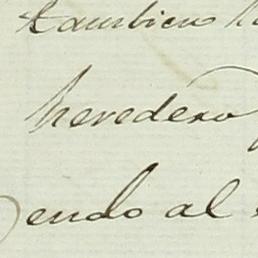 tambien
heredero
endo al